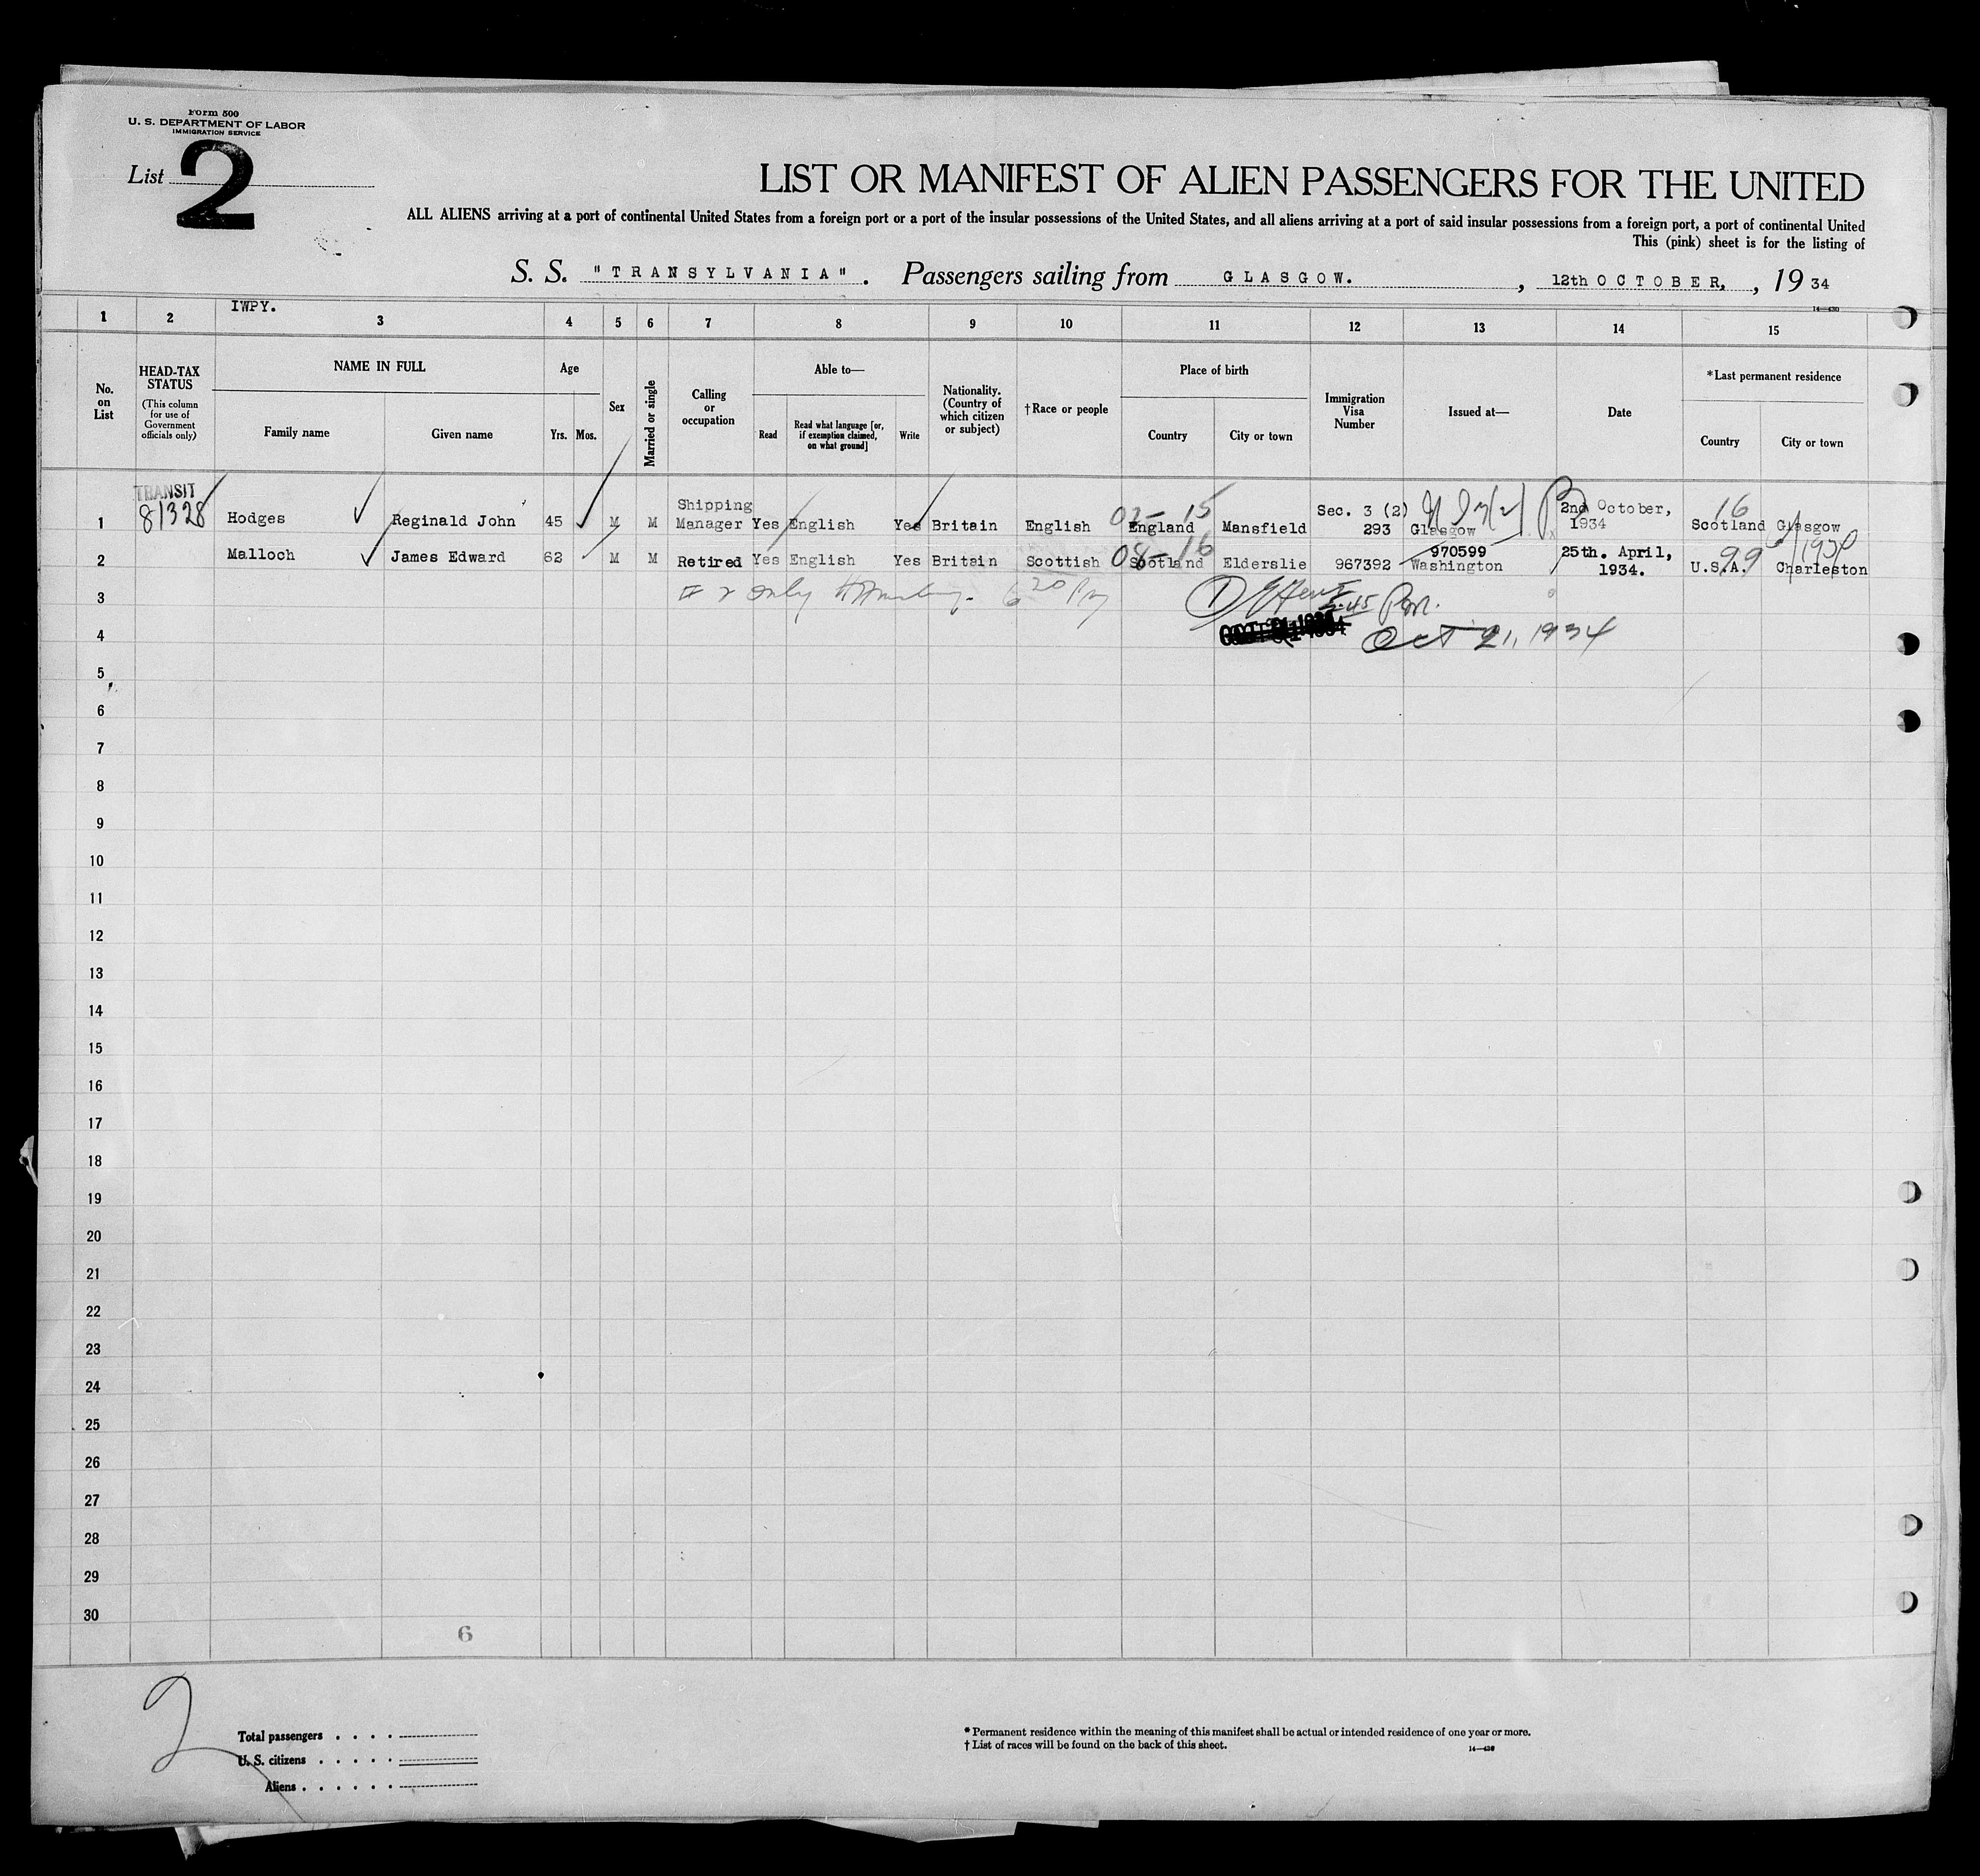 Form 500
U. S. DEPARTMENT OF LABOR
IMMIGRATION SERVICE
List 2
LIST OR MANIFEST OF ALIEN PASSENGERS FOR THE UNITED
ALL ALIENS arriving at a port of continental United States from a foreign port or a port of the insular possessions of the United States, and all aliens arriving at a port of said insular possessions from a foreign port, a port of continental United
This (pink) sheet is for the listing of
S. S. "TRANSYLVANIA". Passengers sailing from GLASGOW. , 12th OCTOBER, , 19 34
14—430
IWPY.
1 2 3 4 5 6 7 8 9 10 11 12 13 14 15
No. on List
HEAD-TAX STATUS
(This column for use of Government officials only)
NAME IN FULL
Family name Given name
Age
Yrs. Mos.
Sex
Married or single
Calling or occupation
Able to—
Read
Read what language [or, if exemption claimed, on what ground]
Write
Nationality. (Country of which citizen or subject)
†Race or people
Place of birth
Country City or town
Immigration Visa Number
Issued at—
Date
*Last permanent residence
Country City or town
TRANSIT
81328
1 Hodges Reginald John 45 M M Shipping Manager Yes English Yes Britain English 02-15 England Mansfield Sec. 3 (2) 293 Glasgow 2nd October, 1934 16 Scotland Glasgow
2 Malloch James Edward 62 M M Retired Yes English Yes Britain Scottish 08-16 Scotland Elderslie 967392 970599 Washington 25th. April, 1934. 99 U.S.A. Charleston
3 only 6 20 Pm
5.45 Pm.
4 Oct 21, 1934
5
6
7
8
9
10
11
12
13
14
15
16
17
18
19
20
21
22
23
24
25
26
27
28
29
30
6
2
Total passengers
U. S. citizens
Aliens
* Permanent residence within the meaning of this manifest shall be actual or intended residence of one year or more.
† List of races will be found on the back of this sheet.
14—430